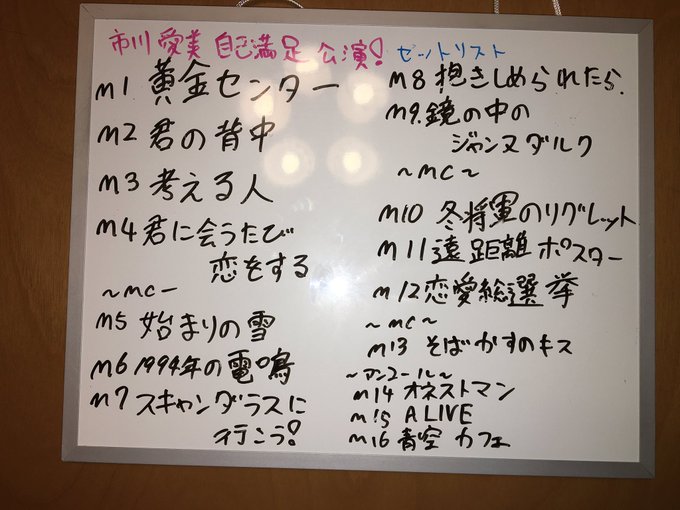 市川愛美 自己満足 公演! ゼットリスト
m1 黄金センター
m2 君の背中
m3 考える人
m4 君に会うたび
恋をする
~mcー
m5 始まりの雪
m6 1994年の電鳴
m7 スキャンダラスに
行こう!
m8 抱きしめられたら
m9.鏡の中の
ジャンヌダルク
~mc~
m10 冬将軍のリグレット
m11 遠距離ポスター
m12 恋愛総選挙
~mc~
m13 そばかすのキス
~アンコール~
m14 オネストマン
m15 ALIVE
m16 青空カフェ